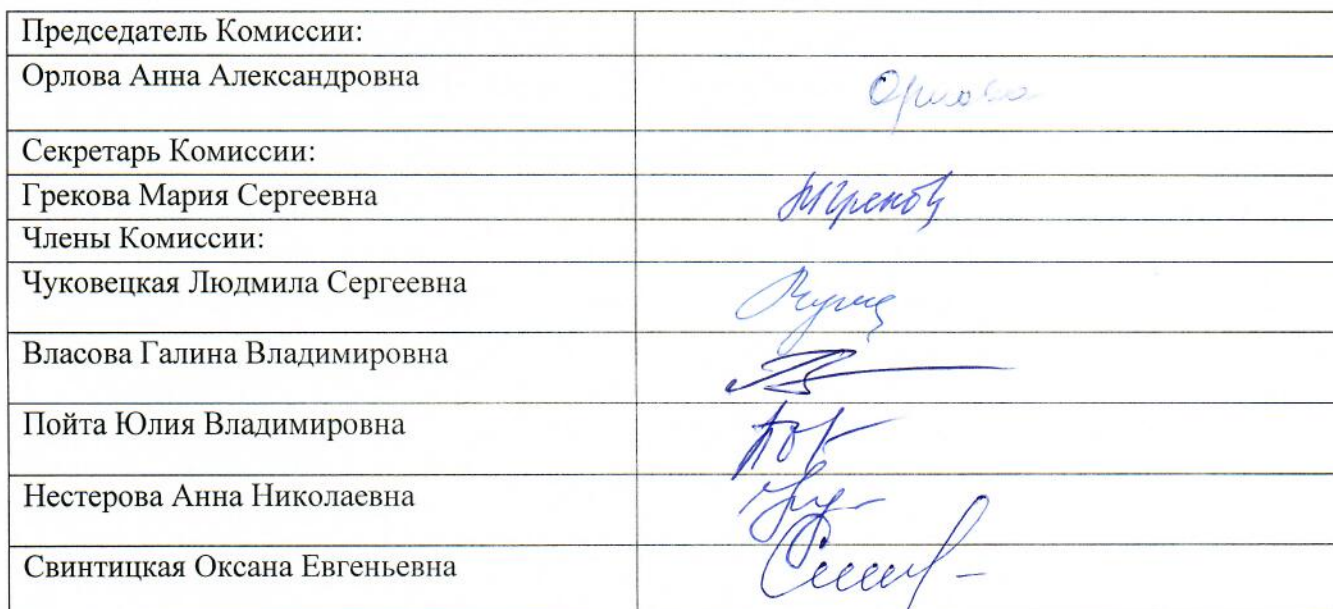 Председатель Комиссии:
Орлова Анна Александровна
Орлова
Секретарь Комиссии:
Грекова Мария Сергеевна
Члены Комиссии:
Чуковецкая Людмила Сергеевна
Власова Галина Владимировна
Пойта Юлия Владимировна
Нестерова Анна Николаевна
Свинтицкая Оксана Евгеньевна